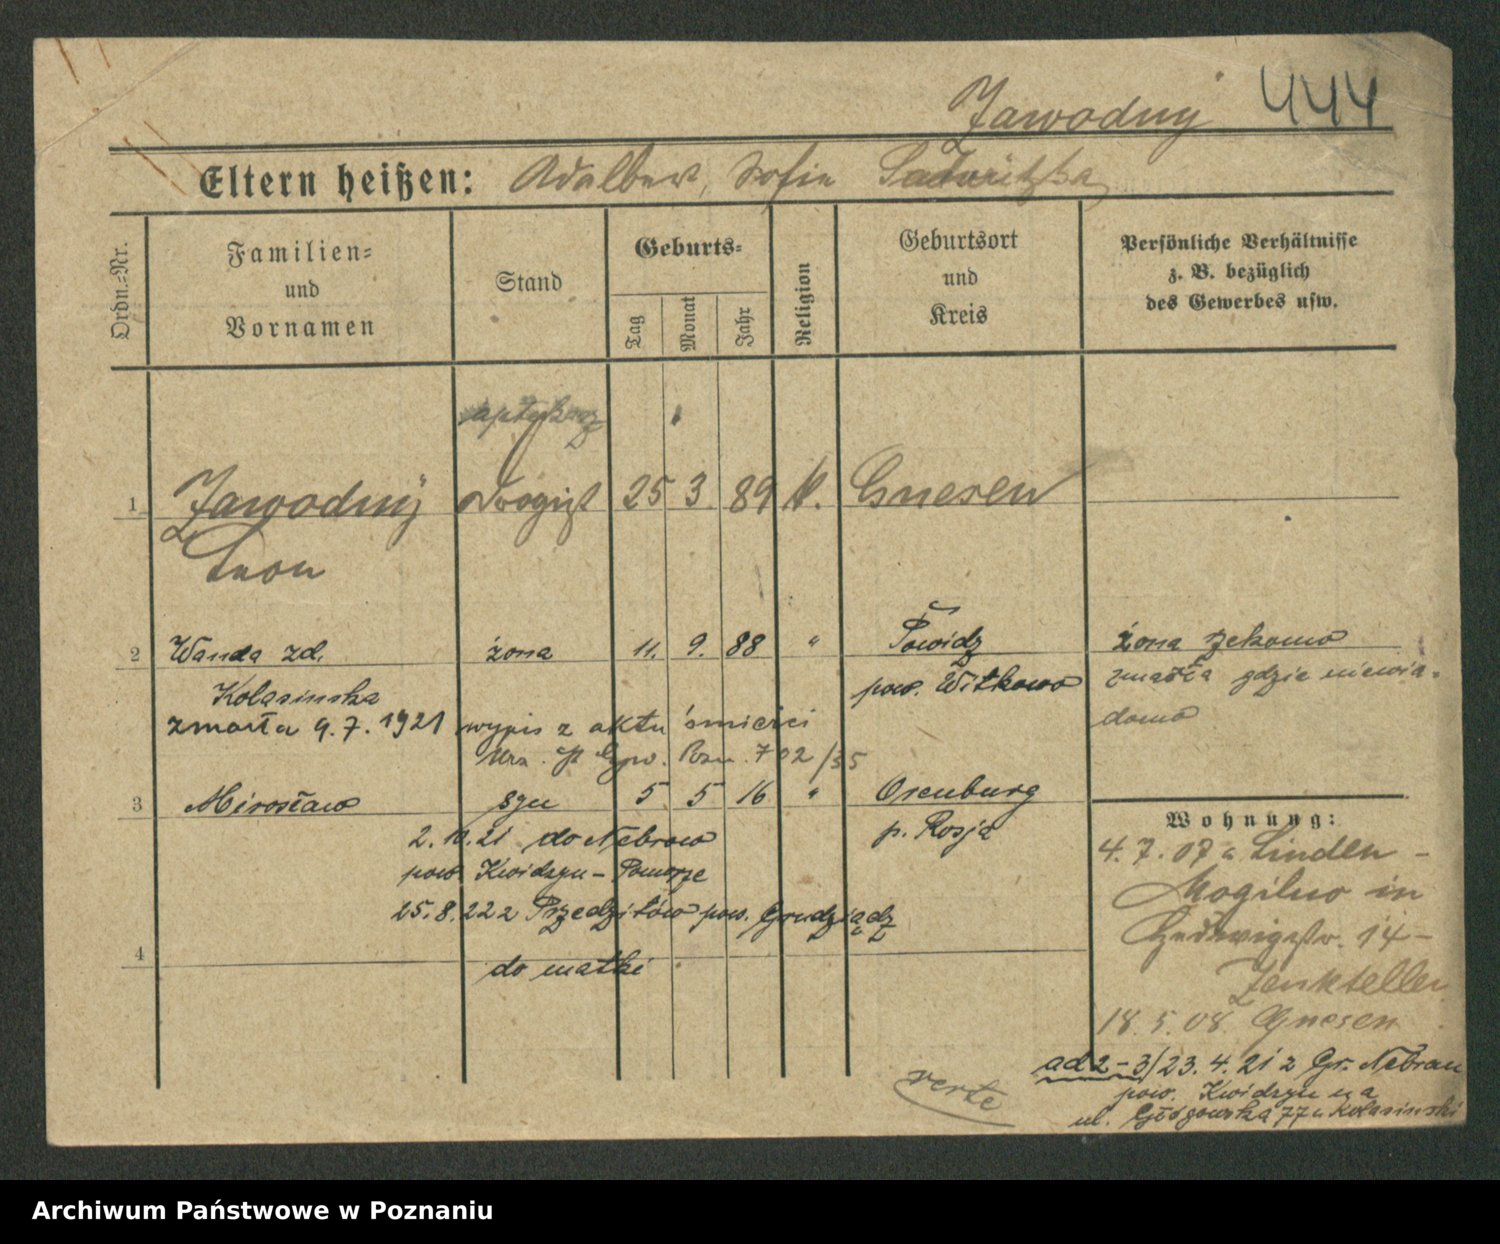 Zawodny 444
Eltern heißen: Adalbert, Sofie
Ordn.-Nr.
Familien-
und
Vornamen
Stand
Geburts-
Tag
Monat
Jahr
Religion
Geburtsort
und
Kreis
Persönliche Verhältnisse
z. B. bezüglich
des Gewerbes usw.
aptekarz
1 Zawodny Drogist 25 3 89 k. Gnesen
Leon
2 Wanda zd. żona 11. 9. 88 " Powidz żona rzekomo
Kolasinska pow. Witkowo zmarła gdzie niewia-
domo
zmarła 9.7.1921 wypis z aktu śmierci
702/35
3 Mirosław syn 5 5 16 " Orenburg
p. Rosja
2.10.21 do Nebrowo
pow. Kwidzyn - Pomorze
25.8.22 z pow. Grudziądz
4
do matki
Wohnung:
4.7.07 a Linden -
Mogilno in
Hedwigstr. 14 -
Zenkteller
18.5.08 Gnesen
ad 2-3/23.4.21 z Gr. Nebrau
pow. Kwidzyn na
ul. Głogowska 77 u Kolasinski
verte
Archiwum Państwowe w Poznaniu